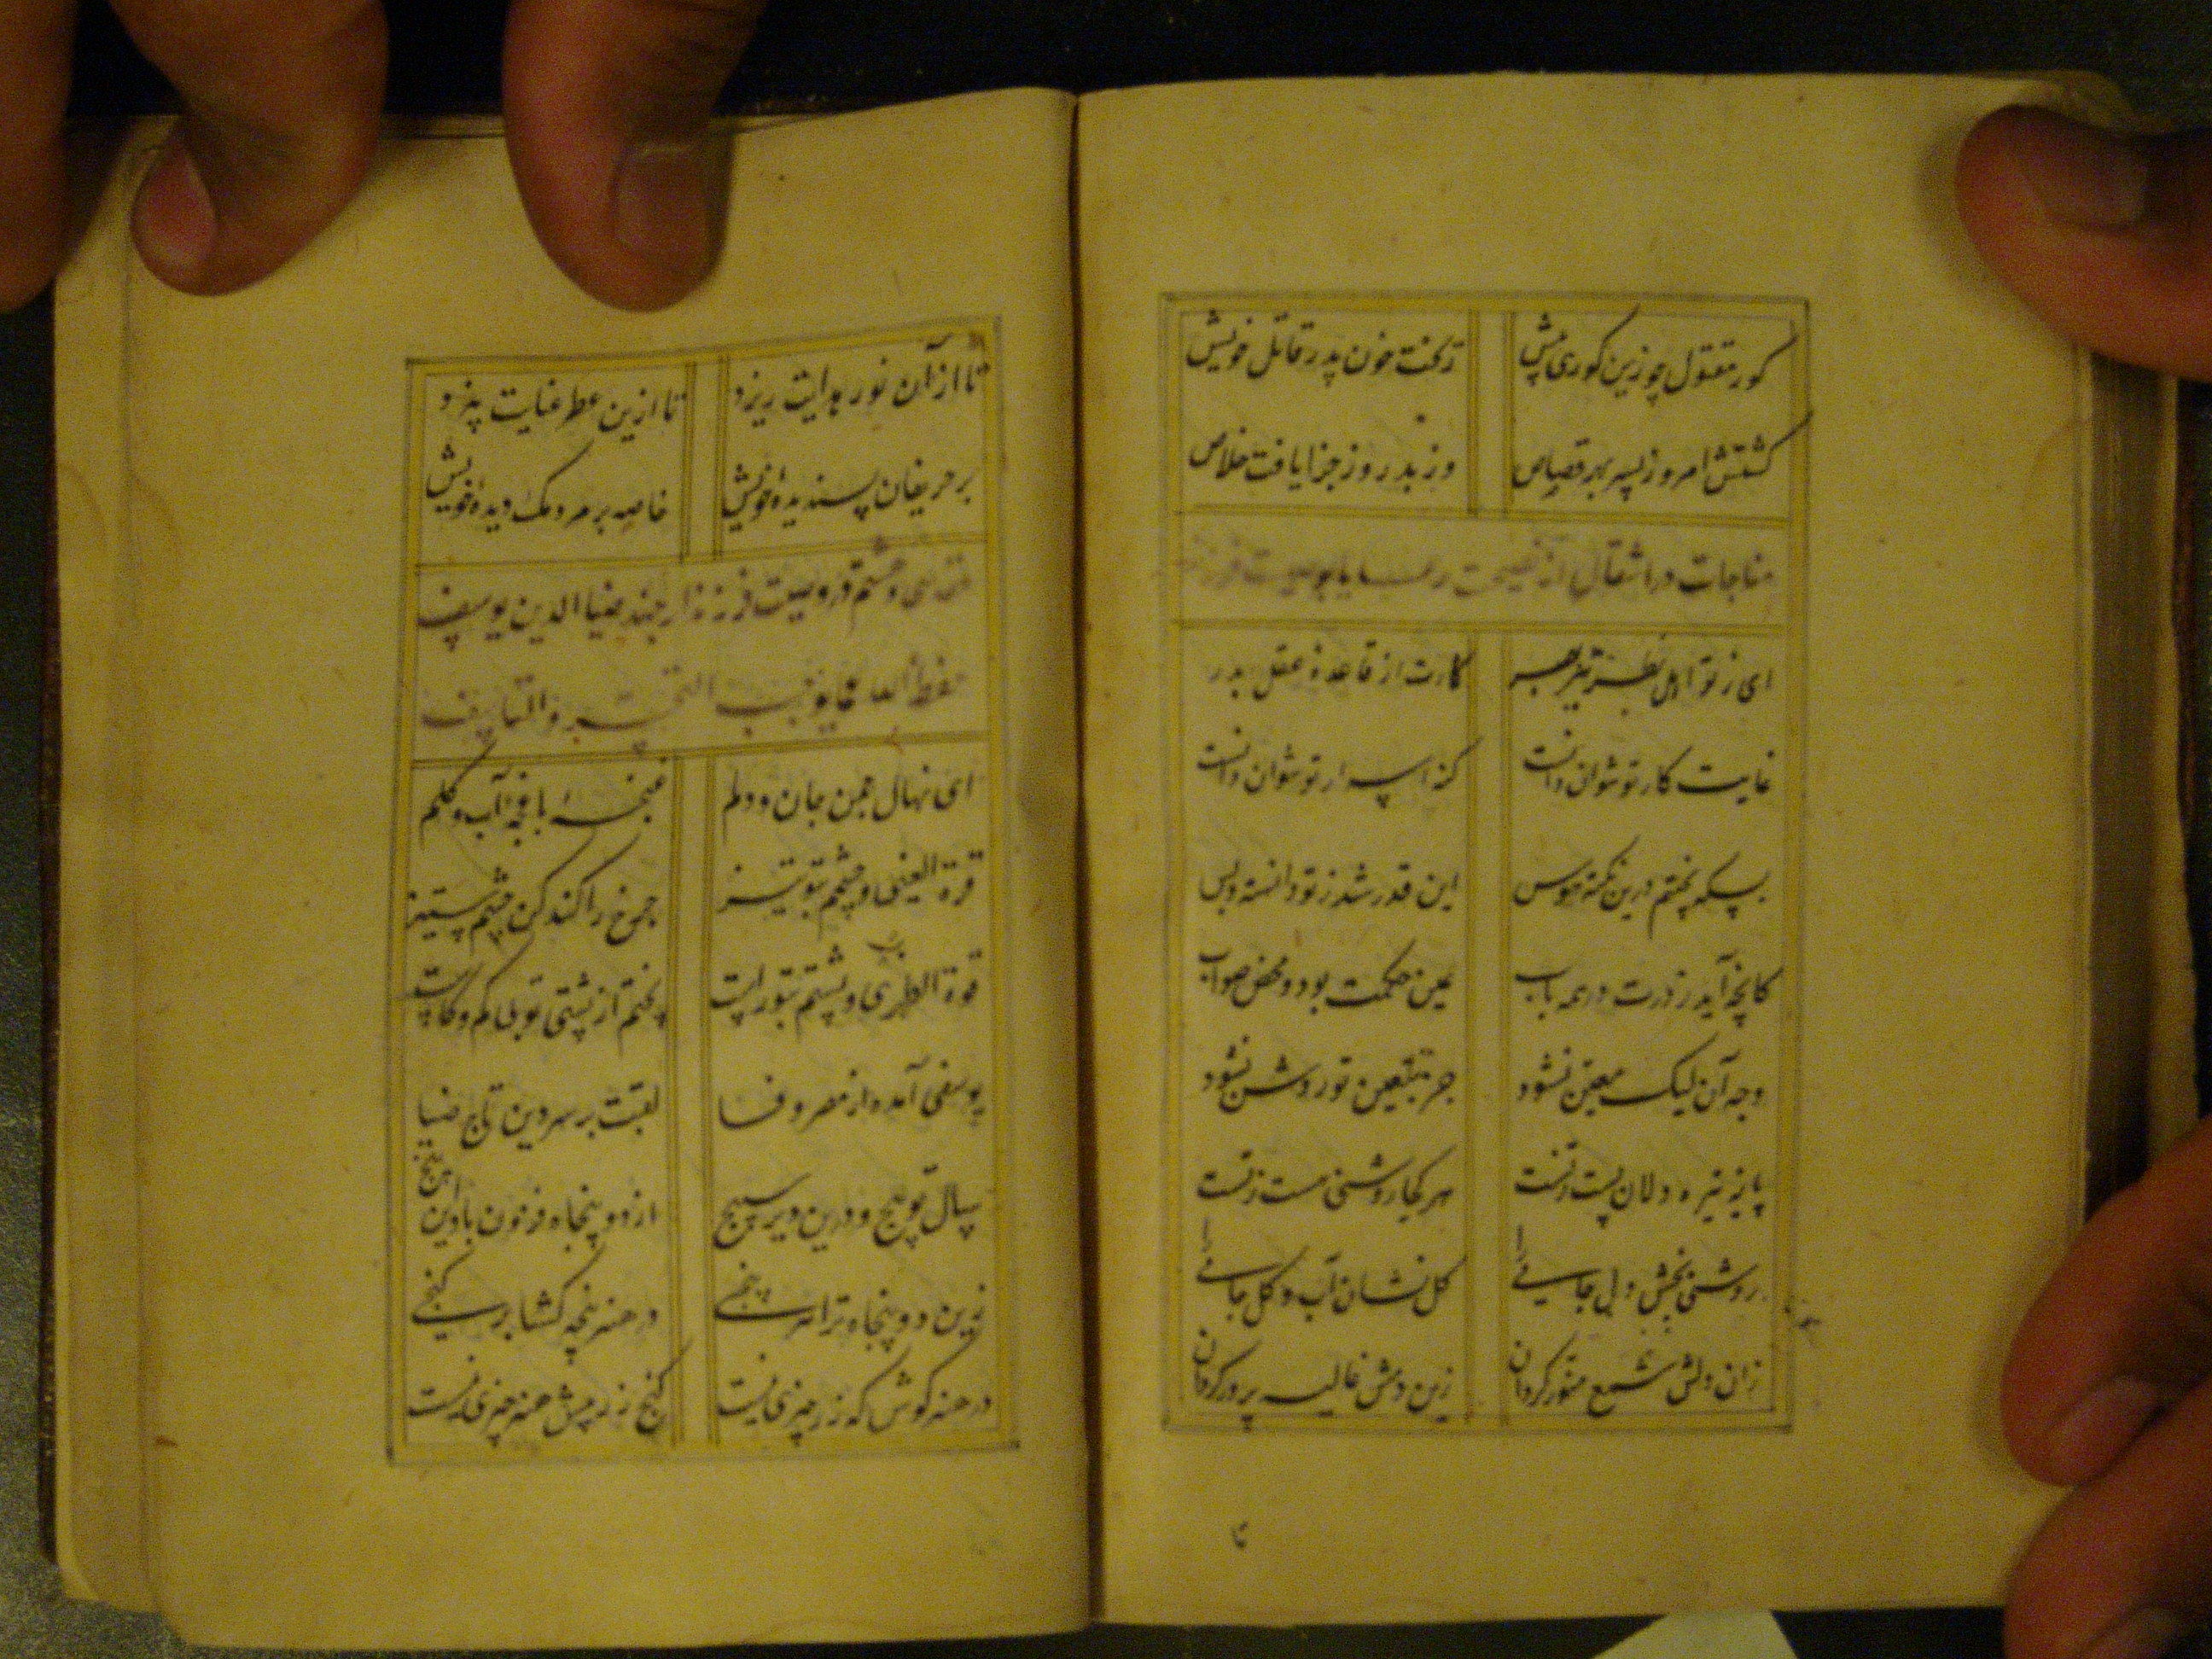 کور مقتول چو زین کوری پیش ریخت خون پدر قاتل خویش
کشتش امروز پسر بهر قصاص وز بد روز جزا یافت خلاص
مناجات در انتقال از نصیحت رعایا بوصیت فرزند
ای ز تو اهل نظر تیز بصر کارت از قاعدهٔ عقل بدر
غایت کار تو نتوان دانست کنه اسرار تو نتوان دانست
بسکه پختم درین نکته هوس این قدر شد ز تو دانسته و بس
کانچه آید ز درت در همه باب عین حکمت بود و محض صواب
وجه آن لیک معین نشود جز بتعیین تو روشن نشود
پایه تیره دلان پست ز تست هر کجا روشنیی هست ز تست
روشنی بخش دل جامی را گل نشان آب و گل جامی را
زان دلش شمع منور گردان زین دمش غالیه پرور گردان
تا
تا از آن نور هدایت ریزد تا ازین عطر عنایت بیزد
بر حریفان پسندیدهٔ خویش خاصه بر مردمک دیدهٔ خویش
عقد سی و هشتم در وصیت فرزند ارجمند ضیاء الدین یوسف
حفظه الله عما یوجب التحسر والتاسف
ای نهال چمن جان و دلم غنچه باغچهٔ آب و گلم
قرة العینی و چشم بتو تیز چرخ را کند کن چشم ستیز
قوة الظهری و پشتم بتو راست پختم از پشتی تو بی کم و کاست
یوسفی آمده از مصر وفا لقبت بر سر دین تاج ضیا
سال تو پنج و درین دیر سپنج از دو پنجاه فزون بادا این پنج
زین دو پنجاه ترا هر پنجی در هنر پنجه گشا بر گنجی
در هنر کوش که زر چیزی نیست گنج زر پیش هنر چیزی نیست